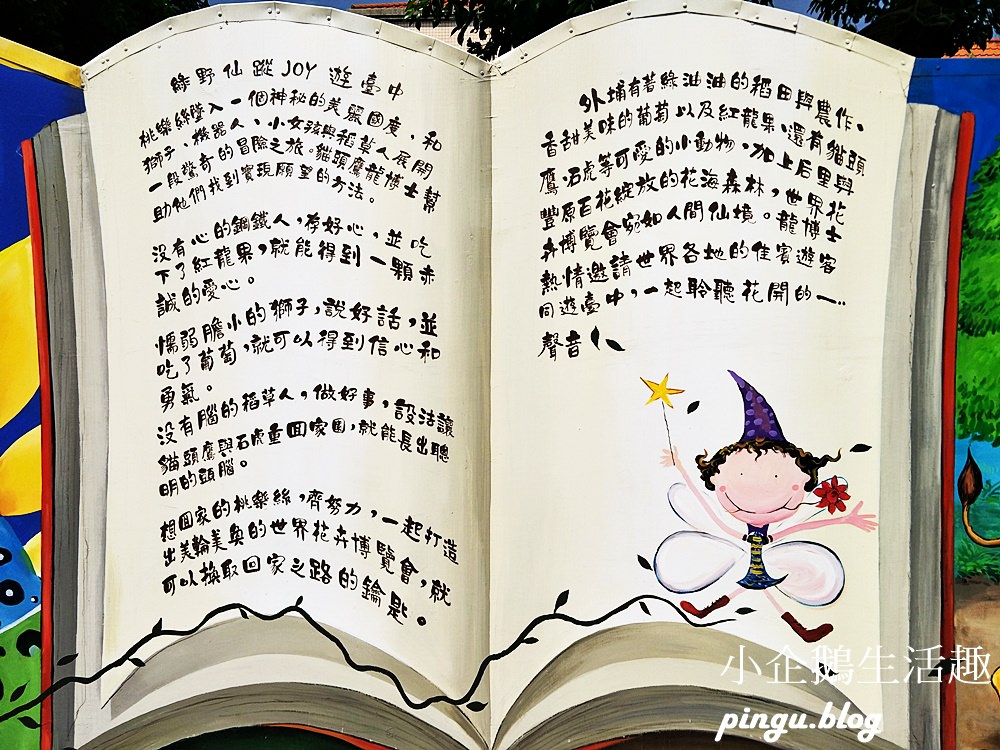 綠野仙蹤JOY 遊臺中
桃樂絲墜入一個神秘的美麗國度，和
獅子、機器人、小女孩與稻草人展開
一段驚奇的冒險之旅。貓頭鷹龍博士幫
助他們找到實現願望的方法。
沒有心的鋼鐵人，存好心，並吃
下了紅龍果，就能得到一顆赤
誠的愛心。
懦弱膽小的獅子，說好話，並
吃了葡萄，就可以得到信心和
勇氣。
沒有腦的稻草人，做好事，設法讓
貓頭鷹與石虎重回家園，就能長出聰
明的頭腦。
想回家的桃樂絲，齊努力，一起打造
出美輪美奐的世界花卉博覽會，就
可以換取回家之路的鑰匙。
外埔有著綠油油的稻田與農作，
香甜美味的葡萄以及紅龍果，還有貓頭
鷹、石虎等可愛的小動物，加上后里與
豐原百花綻放的花海森林，世界花
卉博覽會宛如人間仙境。龍博士
熱情邀請世界各地的佳賓遊客
同遊臺中，一起聆聽花開的一…
聲音
小企鵝生活趣
pingu.blog